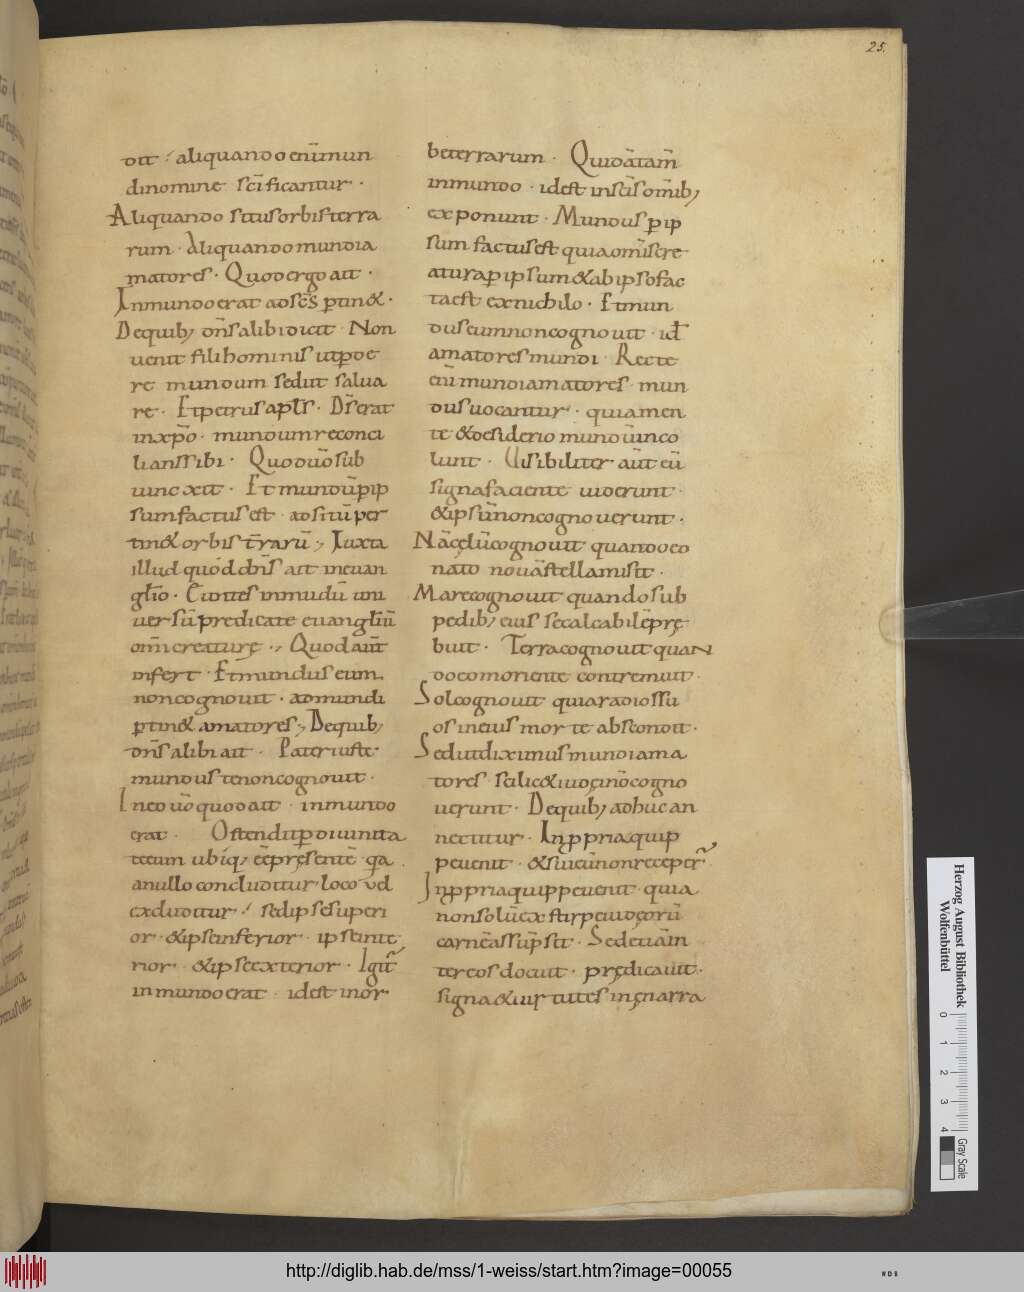 25.
dit · aliquando enī mun
di nomine scī ficantur ·
Aliquando situs orbis terra
rum · Aliquando mundi a
matores · Quod ergo ait ·
In mundo erat ad sc̄os ꝑtin& ·
De quib; dn̄s alibi dicit · Non
uenit fili hominis ut ꝑde
re mundum sed ut salua
re · Et petrus apl̄s · Ds̄ erat
in xp̄o · mundum reconci
lians sibi · Quod uō sub
iunxit · Et mundū ꝑ ip
sum factus est · ad sitū per
tin& orbis t̄rarū ; Iuxta
illud quod dn̄s ait in euan
gl̄io · Euntes in mudū uni
uersū predicate euangliū
om̄i creaturę ·, Quod aūt
infert · Et mundus eum
non cognouit · ad mundi
ꝑtin& amatores ; De quib;
dn̄s alibi ait · Pater iuste ·
mundus te non cognouit ·
In eo uō quod ait · in mundo
erat · Ostendit ꝑ diuinita
tē eum ubiq; eē pręsentē · qa
a nullo concluditur loco vel
excluditur · sed ipse superi
or · & ipse inferior · ipse inte
rior · & ipse exterior · Igit̄
in mundo erat · id est in or
be terrarum · Quidā tam̄
in mundo · id est in sc̄is om̄ib;
exponunt · Mundus ꝑ ip
sum factus est quia om̄is cre
atura ꝑ ipsum & ab ipso fac
ta est ex nichilo · Et mun
dus eum non cognouit · id ÷
amatores mundi · Recte
enī mundi amatores · mun
dus uocantur · quia men
te & desiderio mundū inco
lunt · Uisibiliter aūt eū
signa faciente uiderunt ·
& ipsū non cognouerunt ·
Nā cęlū cognouit quando eo
nato nouā stellā misit ·
Mare cognouit quando sub
pedib; eius se calcabilē pre
buit · Terra cognouit quan
do eo moriente contremuit ·
Sol cognouit quia radios su
os in eius morte abscondit ·
Sed ut diximus mundi ama
tores scilic& iudęi nō cogno
uerunt · De quib; adhuc an
nectitur · In ꝓpria quip
pe uenit · & sui eū non receper̄ ·
In ꝓpria quippe uenit · quia
non solū ex stirpe iudęorū
carnē assūpsit · Sed etiā in
ter eos docuit · prędicauit ·
signa & uirtutes in enarra
Herzog August Bibliothek
Wolfenbüttel
0 1 2 3 4
Gray Scale
http://diglib.hab.de/mss/1-weiss/start.htm?image=00055